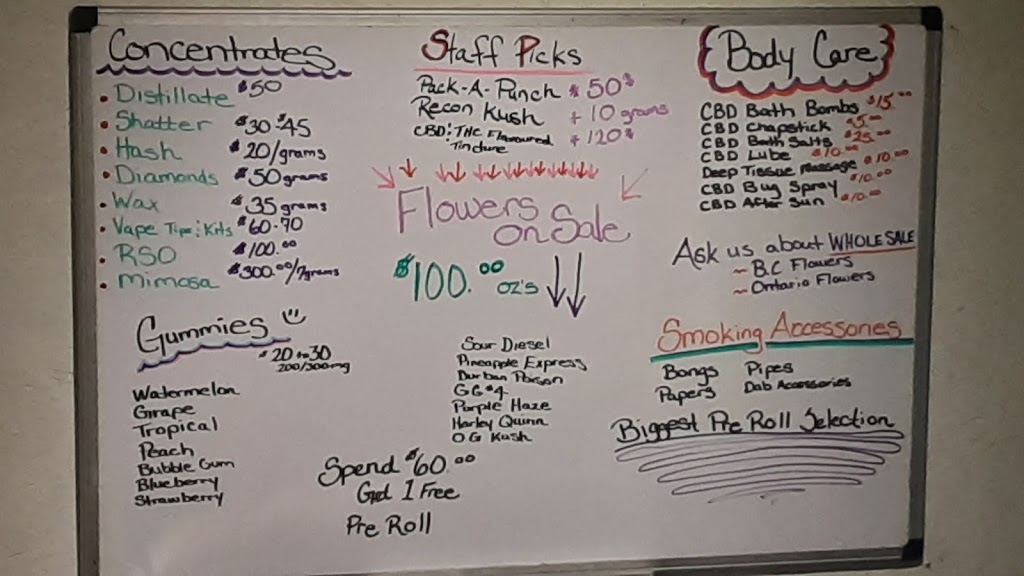 Concentrates
• Distillate $50
• Shatter $30-$45
• Hash $20/grams
• Diamonds $50 grams
• Wax $35 grams
• Vape Tips: Kits $60-70
• RSO $100.00
• Mimosa $300.00/7grams
Gummies
$20 to 30
200/300mg
Watermelon
Grape
Tropical
Peach
Bubble Gum
Blueberry
Strawberry
Staff Picks
Pack-A-Punch $50$
Recon Kush + 10 grams
CBD: THC Flavoured + 120$
Tincture
Flowers
on Sale
$100.00 oz's
Sour Diesel
Pineapple Express
Durban Poison
GG #4
Purple Haze
Harley Quinn
OG Kush
Spend $60.00
Get 1 Free
Pre Roll
Body Care
CBD Bath Bombs $15.00
CBD Chapstick $5.00
CBD Bath Salts $25.00
CBD Lube $10.00
Deep Tissue Massage $10.00
CBD Bug Spray $10.00
CBD After Sun $10.00
Ask us about WHOLESALE
~ B.C Flowers
~ Ontario Flowers
Smoking Accessories
Bongs Pipes
Papers Dab Accessories
Biggest Pre Roll Selection